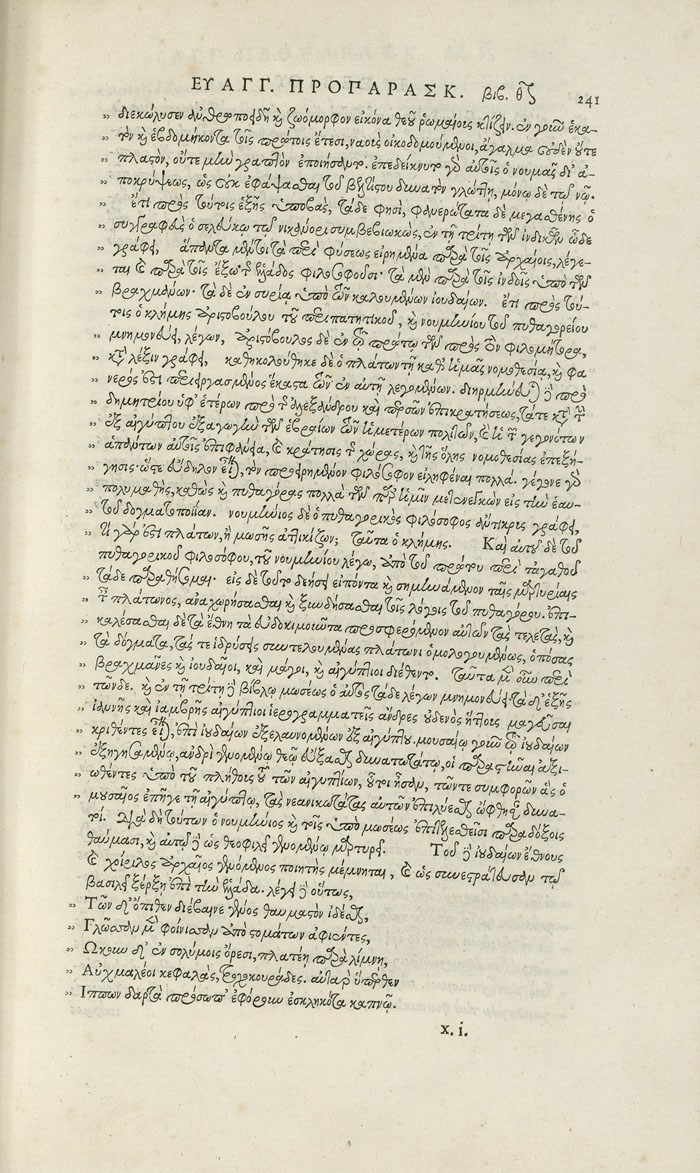 ΕΥΑΓΓ. ΠΡΟΠΑΡΑΣΚ. βιβ. θ
241
διεκώλυσεν ἀνθρωποειδῆ καὶ ζωόμορφον εἰκόνα θεοῦ ῥωμαίοις κτίζειν. ἐν γοῦν ἑκα-
τὸν καὶ ἑβδομήκοντα τοῖς πρώτοις ἔτεσι, ναοὺς οἰκοδομούμενοι, ἄγαλμα οὐδὲν οὔτε
πλαστὸν, οὔτε μὴν γραπτὸν ἐποιήσαντο. ἐπεδείκνυτο γὰρ αὐτοῖς ὁ νουμᾶς δι' ἀ-
ποκρύψεως, ὡς οὐκ ἐφάψασθαι τοῦ βελτίστου δυνατὸν γλώττῃ, μόνῳ δὲ τῷ νῷ.
ἔτι πρὸς τούτοις ἑξῆς ὑποβὰς, τάδε φησὶ, φανερώτατα δὲ μεγασθένης ὁ
συγγραφεὺς ὁ σελεύκῳ τῷ νικάνορι συμβεβιωκὼς, ἐν τῇ τρίτῃ τῶν ἰνδικῶν ὧδε
γράφει, ἅπαντα μέντοι τὰ περὶ φύσεως εἰρημένα παρὰ τοῖς ἀρχαίοις, λέγε-
ται καὶ παρὰ τοῖς ἔξω τῆς ἑλλάδος φιλοσοφοῦσι. τὰ μὲν παρὰ τοῖς ἰνδοῖς ὑπὸ τῶν
βραχμάνων. τὰ δὲ ἐν συρίᾳ ὑπὸ τῶν καλουμένων ἰουδαίων. ἔτι πρὸς τού-
τοις ὁ κλήμης ἀριστοβούλου τοῦ περιπατητικοῦ, καὶ νουμηνίου τοῦ πυθαγορείου
μνημονεύει, λέγων, ἀριστόβουλος δὲ ἐν τῷ πρώτῳ τῶν πρὸς τὸν φιλομήτορα,
κατὰ λέξιν γράφει, κατηκολούθηκε δὲ ὁ πλάτων τῇ καθ' ἡμᾶς νομοθεσίᾳ, καὶ φα
νερός ἐστι περιεργασάμενος ἕκαστα τῶν ἐν αὐτῇ λεγομένων. διηρμήνευται δὲ πρὸ
δημητρίου ὑφ' ἑτέρων πρὸ τῆς ἀλεξάνδρου καὶ περσῶν ἐπικρατήσεως, τά τε κατὰ τὴν
ἐξ αἰγύπτου ἐξαγωγὴν τῶν ἑβραίων τῶν ἡμετέρων πολιτῶν, καὶ ἡ τῶν γεγονότων
ἁπάντων αὐτοῖς ἐπιφάνεια, καὶ κράτησις τῆς χώρας, καὶ τῆς ὅλης νομοθεσίας ἐπεξή-
γησις· ὥστε εὔδηλον εἶναι, τὸν προειρημένον φιλόσοφον εἰληφέναι πολλά. γέγονε γὰρ
πολυμαθὴς, καθὼς καὶ πυθαγόρας πολλὰ τῶν παρ' ἡμῖν μετενεγκὼν εἰς τὴν ἑαυ-
τοῦ δογματοποιίαν. νουμήνιος δὲ ὁ πυθαγορικὸς φιλόσοφος ἄντικρυς γράφει,
τί γάρ ἐστι πλάτων, ἢ μωσῆς ἀττικίζων; ταῦτα ὁ κλήμης. Καὶ αὐτοῦ δὲ τοῦ
πυθαγορικοῦ φιλοσόφου, τοῦ νουμηνίου λέγω, ἀπὸ τοῦ πρώτου περὶ τἀγαθοῦ
τάδε παραθήσομαι. εἰς δὲ τοῦτο δεήσει εἰπόντα καὶ σημηνάμενον ταῖς μαρτυρίαις
τοῦ πλάτωνος, ἀναχωρήσασθαι καὶ ξυνδήσασθαι τοῖς λόγοις τοῦ πυθαγόρου. ἐπι-
καλέσασθαι δὲ τὰ ἔθνη τὰ εὐδοκιμοῦντα προσφερόμενον αὐτῶν τὰς τελετὰς, καὶ
τὰ δόγματα, τάς τε ἱδρύσεις συντελουμένας πλάτωνι ὁμολογουμένως, ὁπόσας
βραχμᾶνες καὶ ἰουδαῖοι, καὶ μάγοι, καὶ αἰγύπτιοι διέθεντο. ταῦτα μὲν οὖν περὶ
τῶνδε. καὶ ἐν τῇ τρίτῃ δὲ βίβλῳ μωσέως ὁ αὐτὸς τάδε λέγων μνημονεύει, τὰ δ' ἑξῆς
ἰαννῆς καὶ ἰαμβρῆς αἰγύπτιοι ἱερογραμματεῖς ἄνδρες οὐδενὸς ἥττους μαγεῦσαι
κριθέντες εἶναι, ἐπὶ ἰουδαίων ἐξελαυνομένων ἐξ αἰγύπτου. μουσαίῳ γοῦν τῷ ἰουδαίων
ἐξηγησαμένῳ, ἀνδρὶ γενομένῳ θεῷ εὔξασθαι δυνατωτάτῳ, οἱ παραστῆναι ἀξι-
ωθέντες ὑπὸ τοῦ πλήθους τοῦ τῶν αἰγυπτίων, οὗτοι ἦσαν, τῶν τε συμφορῶν ἃς ὁ
μουσαῖος ἐπῆγε τῇ αἰγύπτῳ, τὰς νεανικωτάτας αὐτῶν ἐπιλύεσθαι ὤφθησαν δυνα-
τοί. διὰ δὴ τούτων ὁ νουμήνιος καὶ τοῖς ὑπὸ μωσέως ἐπιτελεσθεῖσι παραδόξοις
θαύμασι, καὶ αὐτῷ δὲ ὡς θεοφιλεῖ γενομένῳ μαρτυρεῖ. Τοῦ δὲ ἰουδαίων ἔθνους
καὶ χοίριλος ἀρχαῖος γενόμενος ποιητὴς μέμνηται, καὶ ὡς συνεστράτευσαν τῷ
βασιλεῖ ξέρξῃ ἐπὶ τὴν ἑλλάδα. λέγει δὲ οὕτως,
Τῶν δ' ὄπιθεν διέβαινε γένος θαυμαστὸν ἰδέσθαι,
Γλῶσσαν μὲν φοίνισσαν ἀπὸ στομάτων ἀφιέντες,
Ὤκεον δ' ἐν σολύμοις ὄρεσι, πλατέῃ παρὰ λίμνῃ,
Αὐχμαλέοι κεφαλὰς, τροχοκουράδες. αὐτὰρ ὕπερθεν
Ἵππων δαρτὰ πρόσωπ' ἐφόρεον ἐσκληκότα καπνῷ.
x. i.